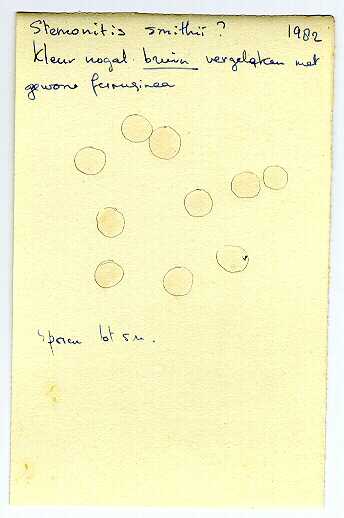 Stemonitis smithii? 1982
Kleur nogal bruin vergeleken met
gewone ferruginea
Sporen tot 5 µ.